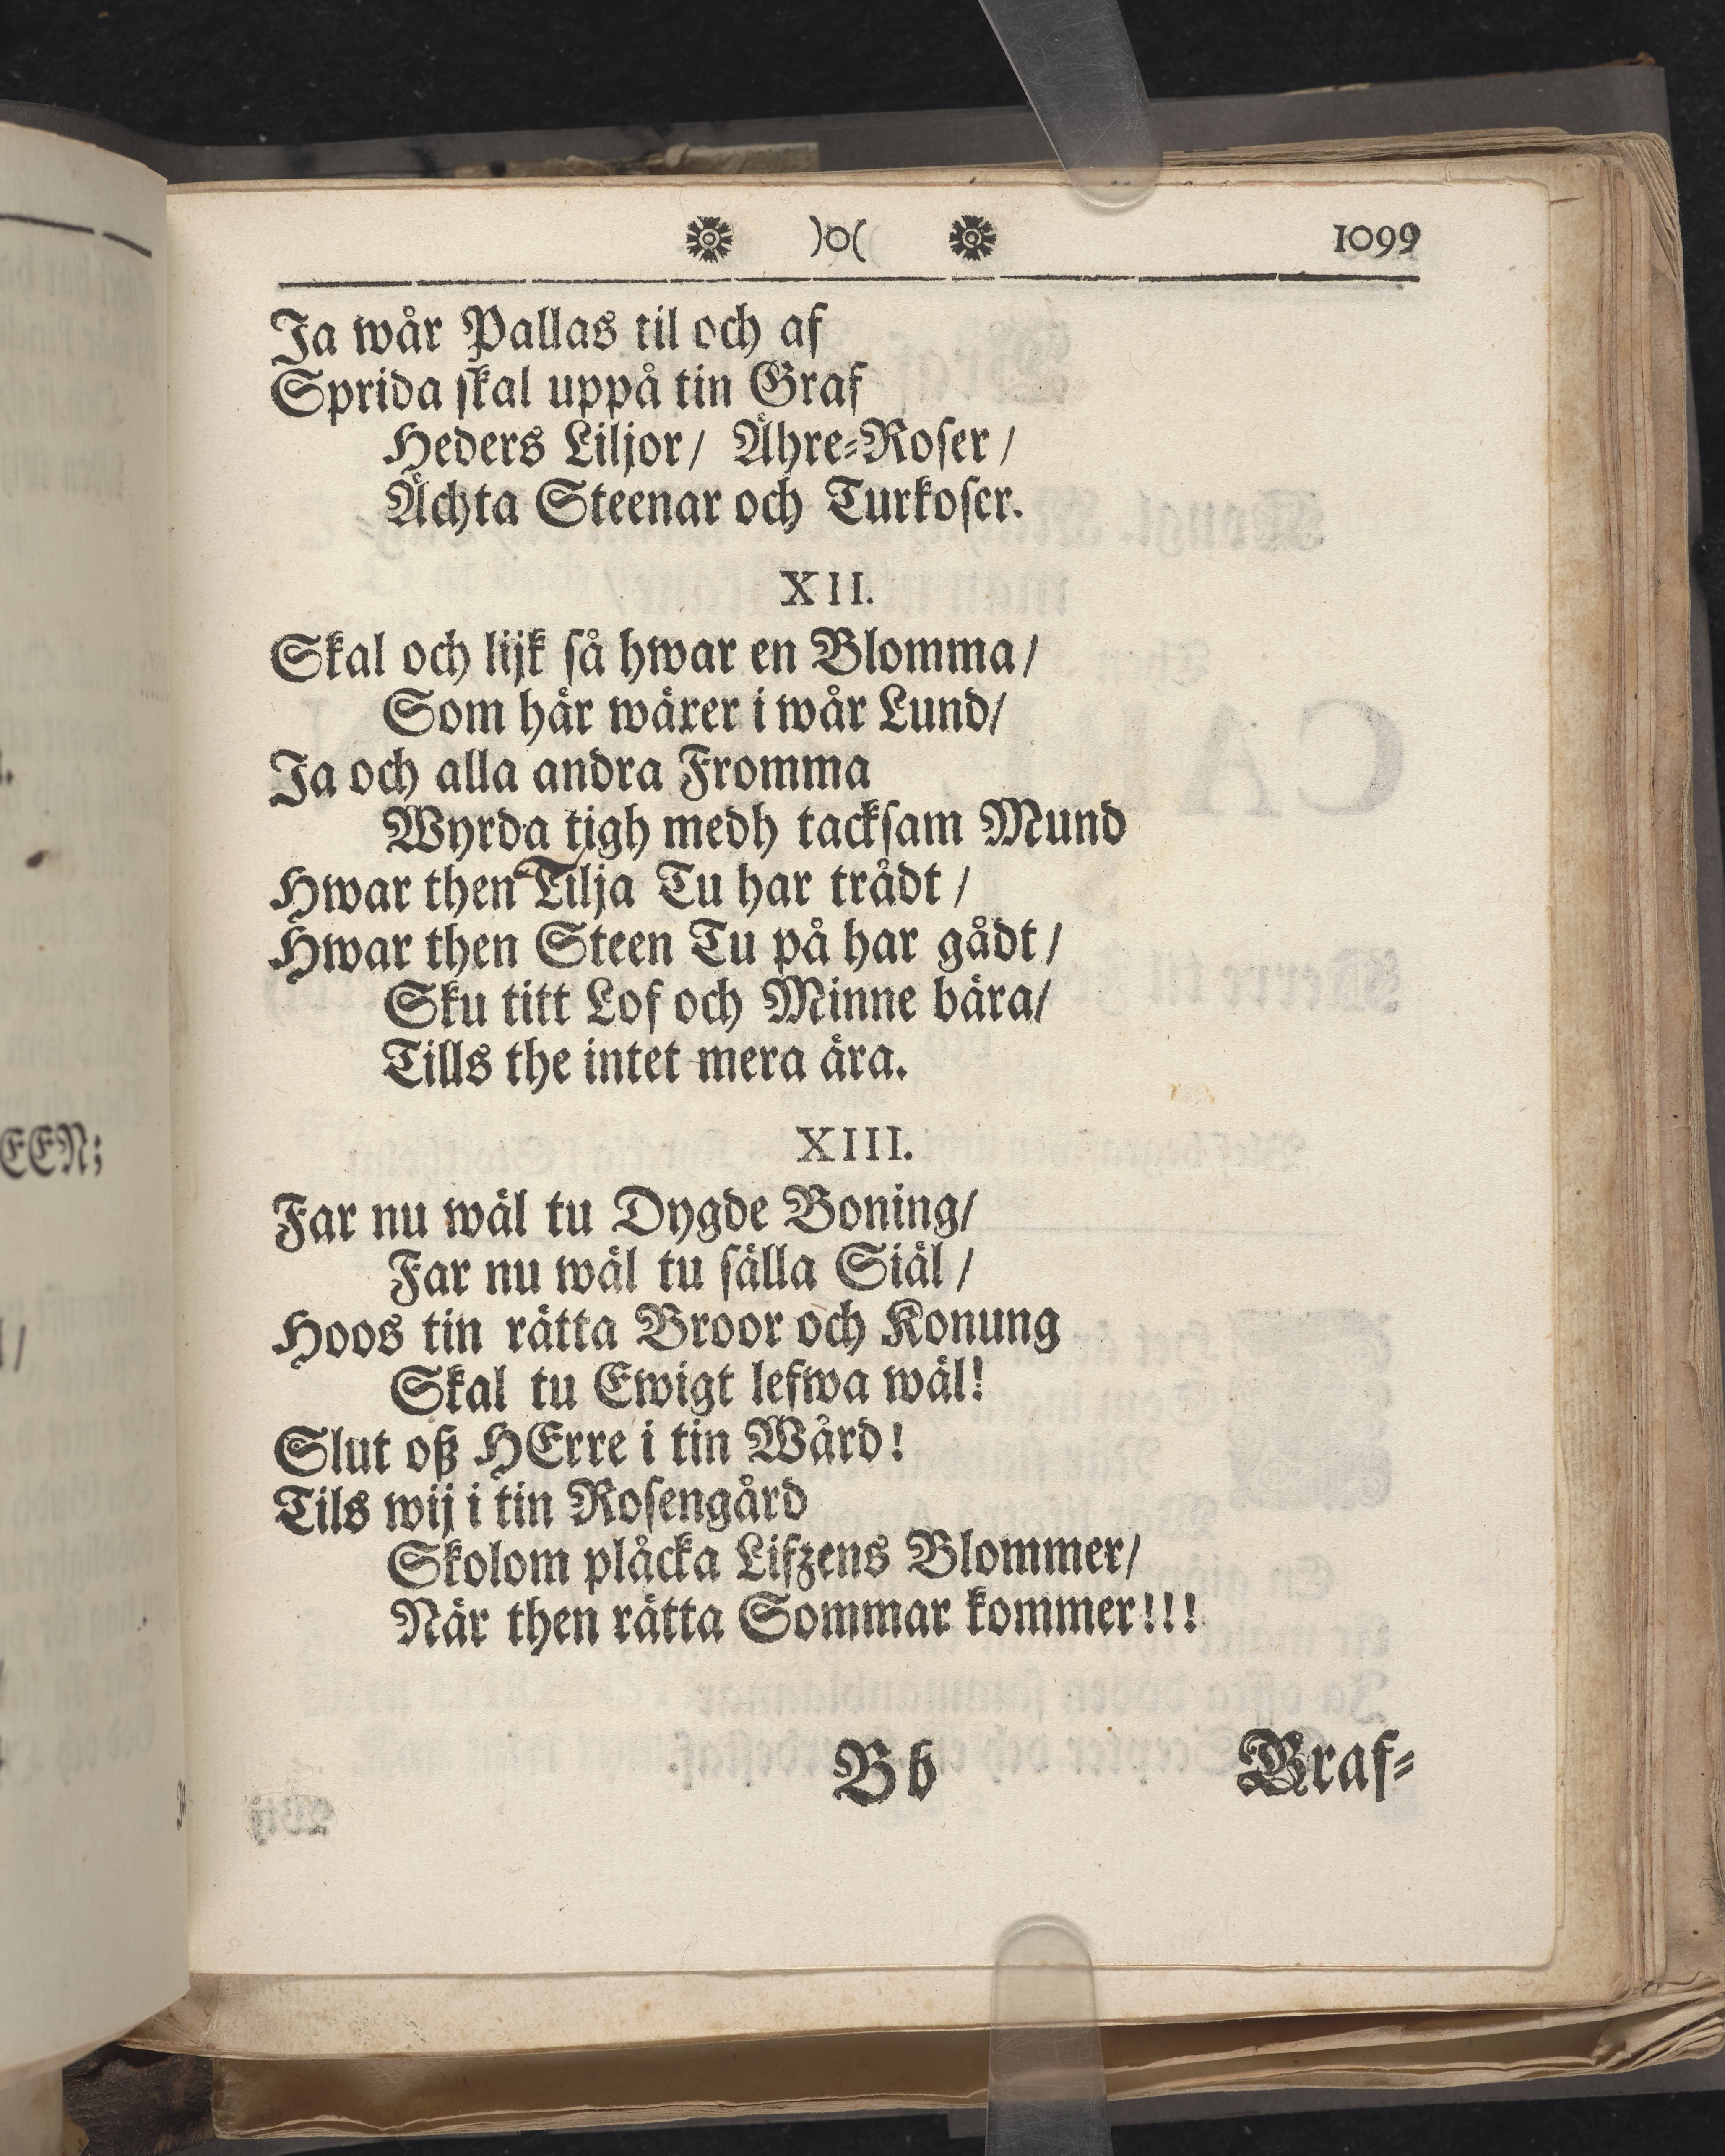 )o( 1099
Ja wår Pallas til och af
Sprida skal uppå tin Graf
Heders Liljor/ Ähre-Roser/
Ächta Steenar och Turkoser.
XII.
Skal och lijk så hwar en Blomma/
Som här wäxer i wår Lund/
Ja och alla andra Fromma
Wyrda tigh medh tacksam Mund
Hwar then Tilja Tu har trådt/
Hwar then Steen Tu på har gådt/
Sku titt Lof och Minne bära/
Tills the intet mera ära.
XIII.
Far nu wäl tu Dygde Boning/
Far nu wäl tu sälla Siäl/
Hoos tin rätta Broor och Konung
Skal tu Ewigt lefwa wäl!
Slut oß HErre i tin Wård!
Tils wij i tin Rosengård
Skolom plåcka Lifzens Blommer/
När then rätta Sommar kommer!!!
Bb Graf-